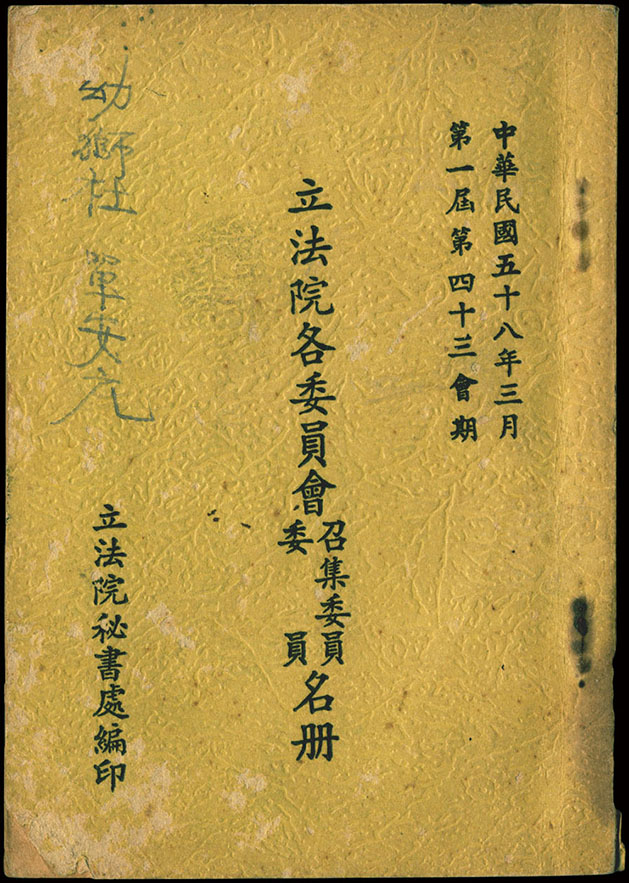 中華民國五十八年三月
第一屆第四十三會期
立法院各委員會召集委員名册
委員
立法院秘書處編印
幼獅社 單安元